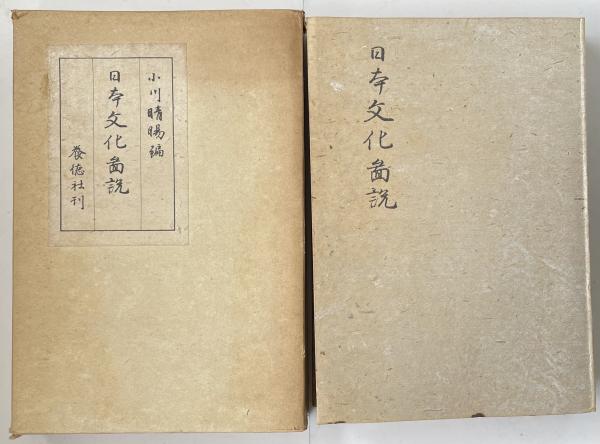 小川晴暘編
日本文化啚説
養徳社刊
日本文化啚説